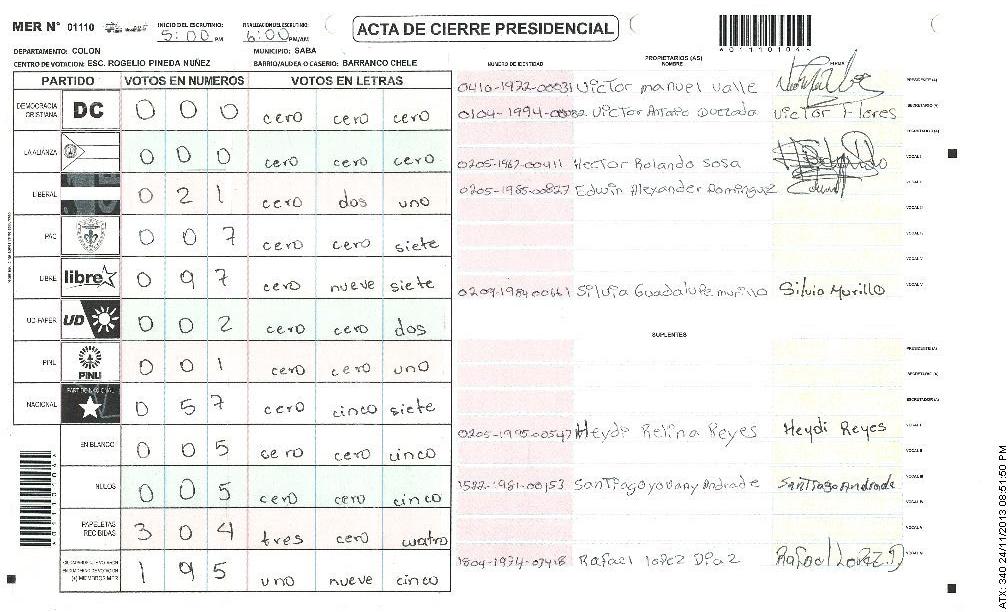 MER N° 01110 INICIO DEL ESCRUTINIO: 5:00 PM FINALIZACIÓN DEL ESCRUTINIO: 6:00 PM/AM
ACTA DE CIERRE PRESIDENCIAL
DEPARTAMENTO: COLON MUNICIPIO: SABA
CENTRO DE VOTACION: ESC. ROGELIO PINEDA NUÑEZ BARRIO/ALDEA O CASERIO: BARRANCO CHELE
PARTIDO VOTOS EN NUMEROS VOTOS EN LETRAS
DEMOCRACIA CRISTIANA DC 0 0 0 cero cero cero
LA ALIANZA 0 0 0 cero cero cero
LIBERAL 0 2 1 cero dos uno
PAC 0 0 7 cero cero siete
LIBRE libre 0 9 7 cero nueve siete
UD-FAPER UD 0 0 2 cero cero dos
PINU PINU 0 0 1 cero cero uno
NACIONAL PARTIDO NACIONAL 0 5 7 cero cinco siete
EN BLANCO 0 0 5 cero cero cinco
NULOS 0 0 5 cero cero cinco
PAPELETAS RECIBIDAS 3 0 4 tres cero cuatro
(+) MIEMBROS MER 1 9 5 uno nueve cinco
PROPIETARIOS (AS)
NUMERO DE IDENTIDAD NOMBRE FIRMA
0410-1972-00031 Victor manuel valle PRESIDENTE (A)
0104-1994- Victor Flores SECRETARIO (A)
0205-1967-00411 Hector Rolando Sosa VOCAL I
0205-1985-00827 Edwin Alexander Dominguez
0209-1984-00661 Silvia Guadalupe murillo Silvia Murillo
SUPLENTES
PRESIDENTE (A)
SECRETARIO (A)
0205-1995-00547 Heydi Relina Reyes Heydi Reyes
1522-1981-00153 Santiago yovany Andrade Santiago Andrade
1804-1974-03418 Rafael lopez Diaz Rafael Lopez D
ATX: 340 24/11/2013 08:51:50 PM